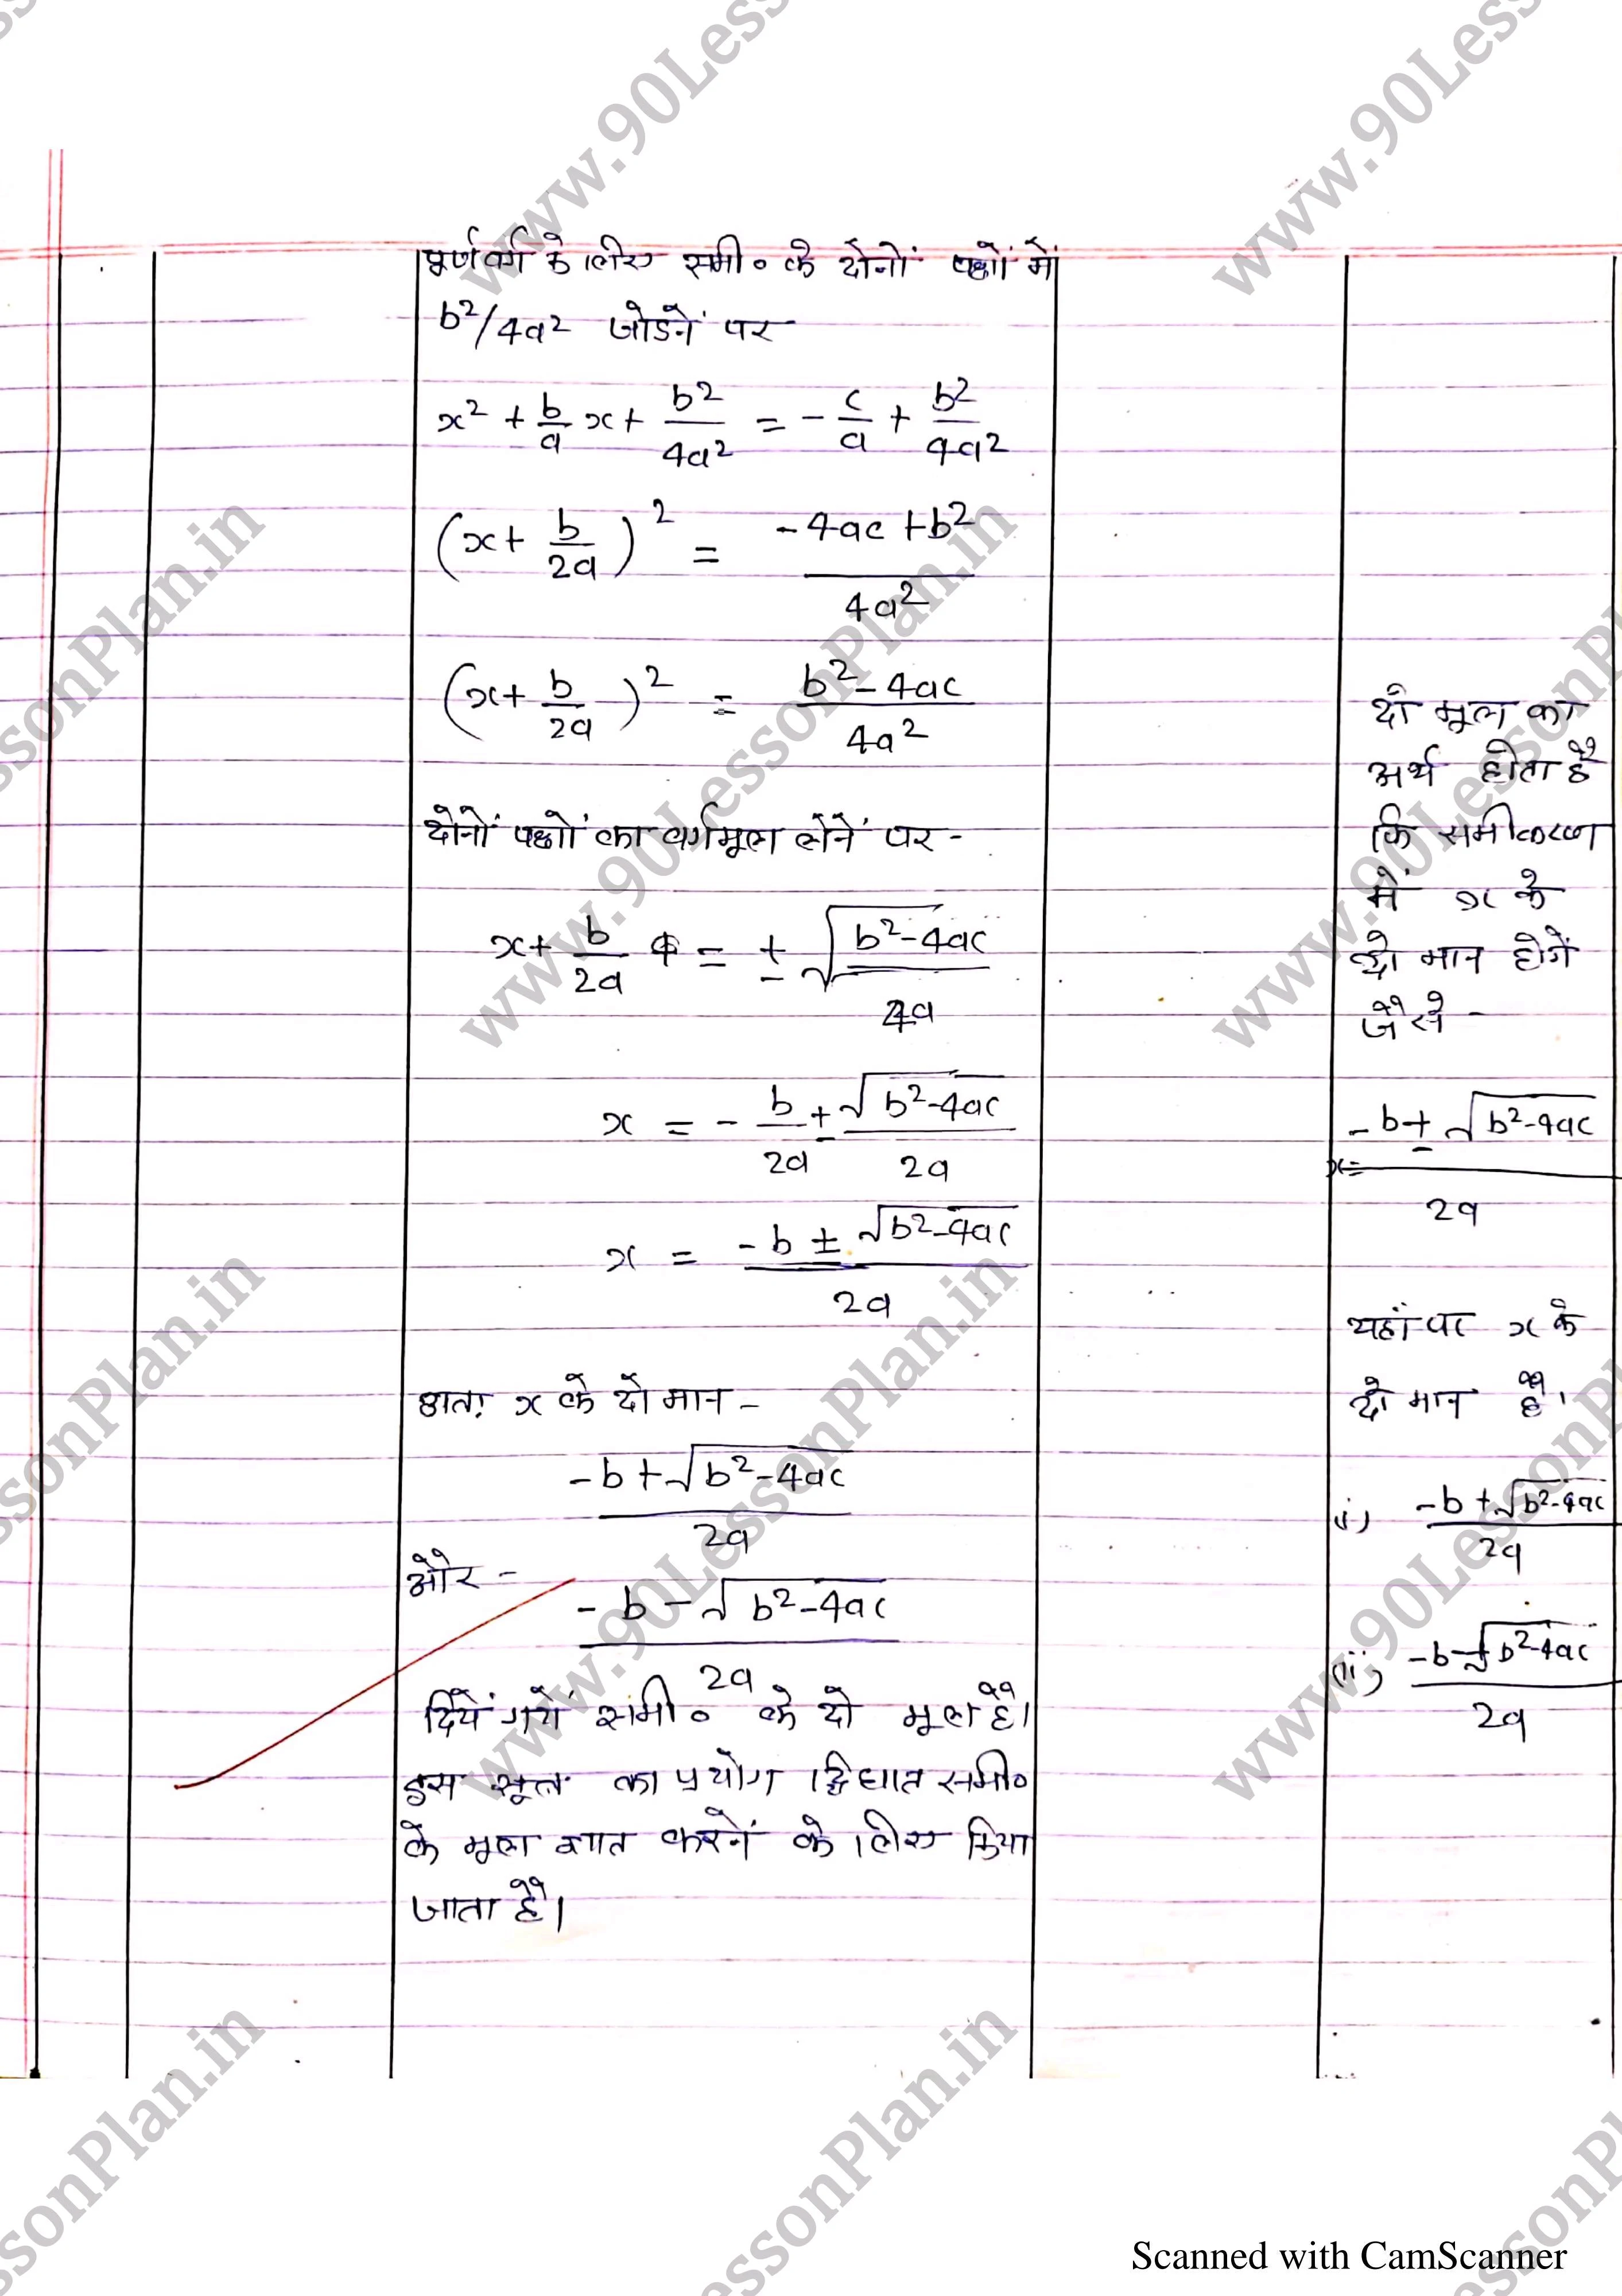 पूर्णवर्ग के लिए समी० के दोनों पक्षों में
b²/4a² जोडनें पर
x² + b/a x + b²/4a² = - c/a + b²/4a²
(x + b/2a)² = -4ac + b² / 4a²
(x + b/2a)² = b² - 4ac / 4a²
दोनों पक्षों का वर्गमूल लेनें पर -
x + b/2a = ± √b²-4ac / 2a
x = - b/2a ± √b²-4ac / 2a
x = -b ± √b²-4ac / 2a
अतः x के दो मान -
-b + √b²-4ac / 2a
और -
-b - √b²-4ac / 2a
दियें गयें समी० के दो मूल है।
इस सूत्र का प्रयोग द्विघात समी०
के मूल ज्ञात करनें के लिए किया
जाता है।
दो मूल का
अर्थ होता है
कि समीकरण
में x के
दो मान होगें
जैसे -
x = -b ± √b²-4ac / 2a
यहाँ पर x के
दो मान है।
(i) -b + √b²-4ac / 2a
(ii) -b - √b²-4ac / 2a
www.90LessonPlan.in
Scanned with CamScanner